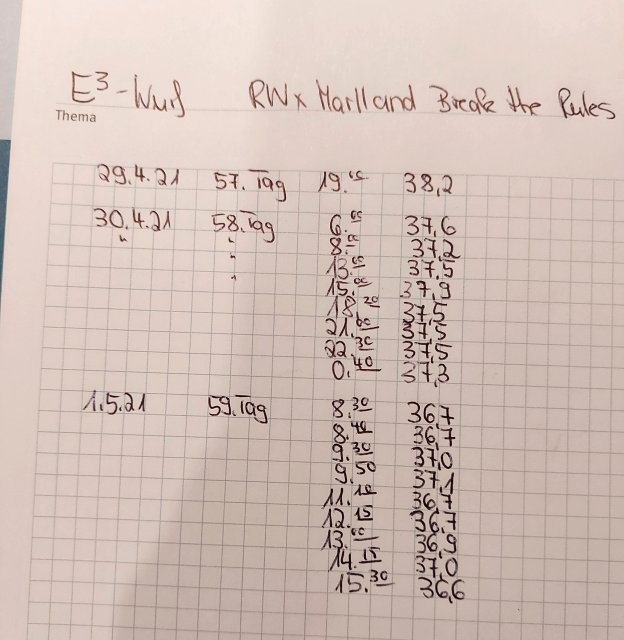 E³-Wurf RW x Marlland Break the Rules
Thema
29.4.21 57.Tag 19.00 38,2
30.4.21 58.Tag 6.00 37,6
" " 8.00 37,2
" 13.00 37,5
" 15.00 37,9
18.20 37,5
21.00 37,5
22.30 37,5
0.40 37,3
1.5.21 59.Tag 8.30 36,7
8.40 36,7
9.30 37,0
9.50 37,1
11.10 36,7
12.15 36,7
13.00 36,9
14.15 37,0
15.30 36,6